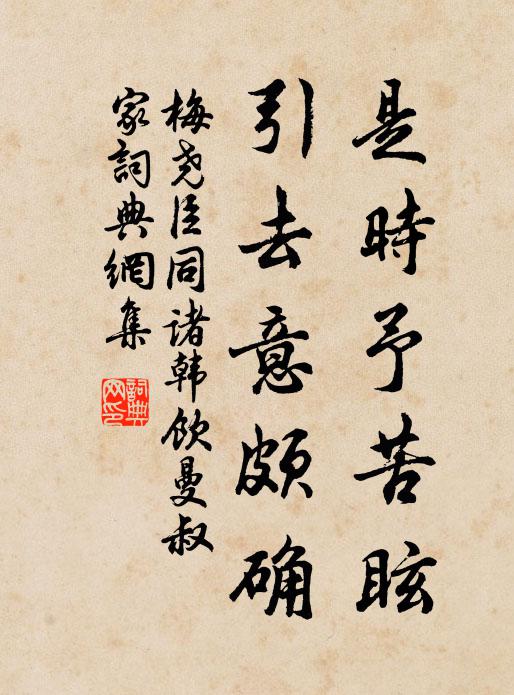 是時予苦眩
引去意頗确
梅尧臣同诸韩饮曼叔
家詞典網集
詞典网印